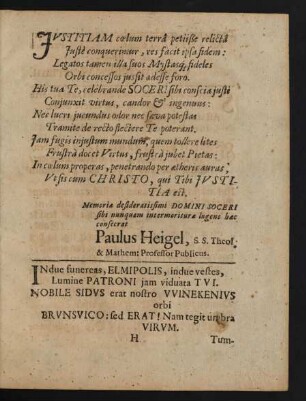 JVSTITIAM cœlum terrâ petiisse relictâ
Justè conquerimur, res facit ipsa fidem:
Legatos tamen illa suos Mystasq; fideles
Orbi concessos jussit adesse foro.
His tua Te, celebrande SOCER! sibi conscia justi
Conjunxit virtus, candor & ingenuus:
Nec lucri jucundus odor nec sæva potestas
Tramite de recto flectere Te poterant.
Jam fugis injustum mundum, quem tollere lites
Frustrà docet Virtus, frustrà jubet Pietas:
In cœlum properas, penetrando per ætheris auras
Vesis cum CHRISTO, qui Tibi JVSTI-
TIA est.
Memoriæ desideratissimi DOMINI SOCERI
sibi nunquam intermorituræ lugens hæc
consecrat
Paulus Heigel, S. S. Theol.
& Mathem: Professor Publicus.
INdue funereas, ELMIPOLIS, indue vestes,
Lumine PATRONI jam viduata TVI.
NOBILE SIDVS erat nostro VVINEKENIVS
orbi
BRVNSVICO: sed ERAT! Nam tegit umbra
VIRVM.
H Tum-